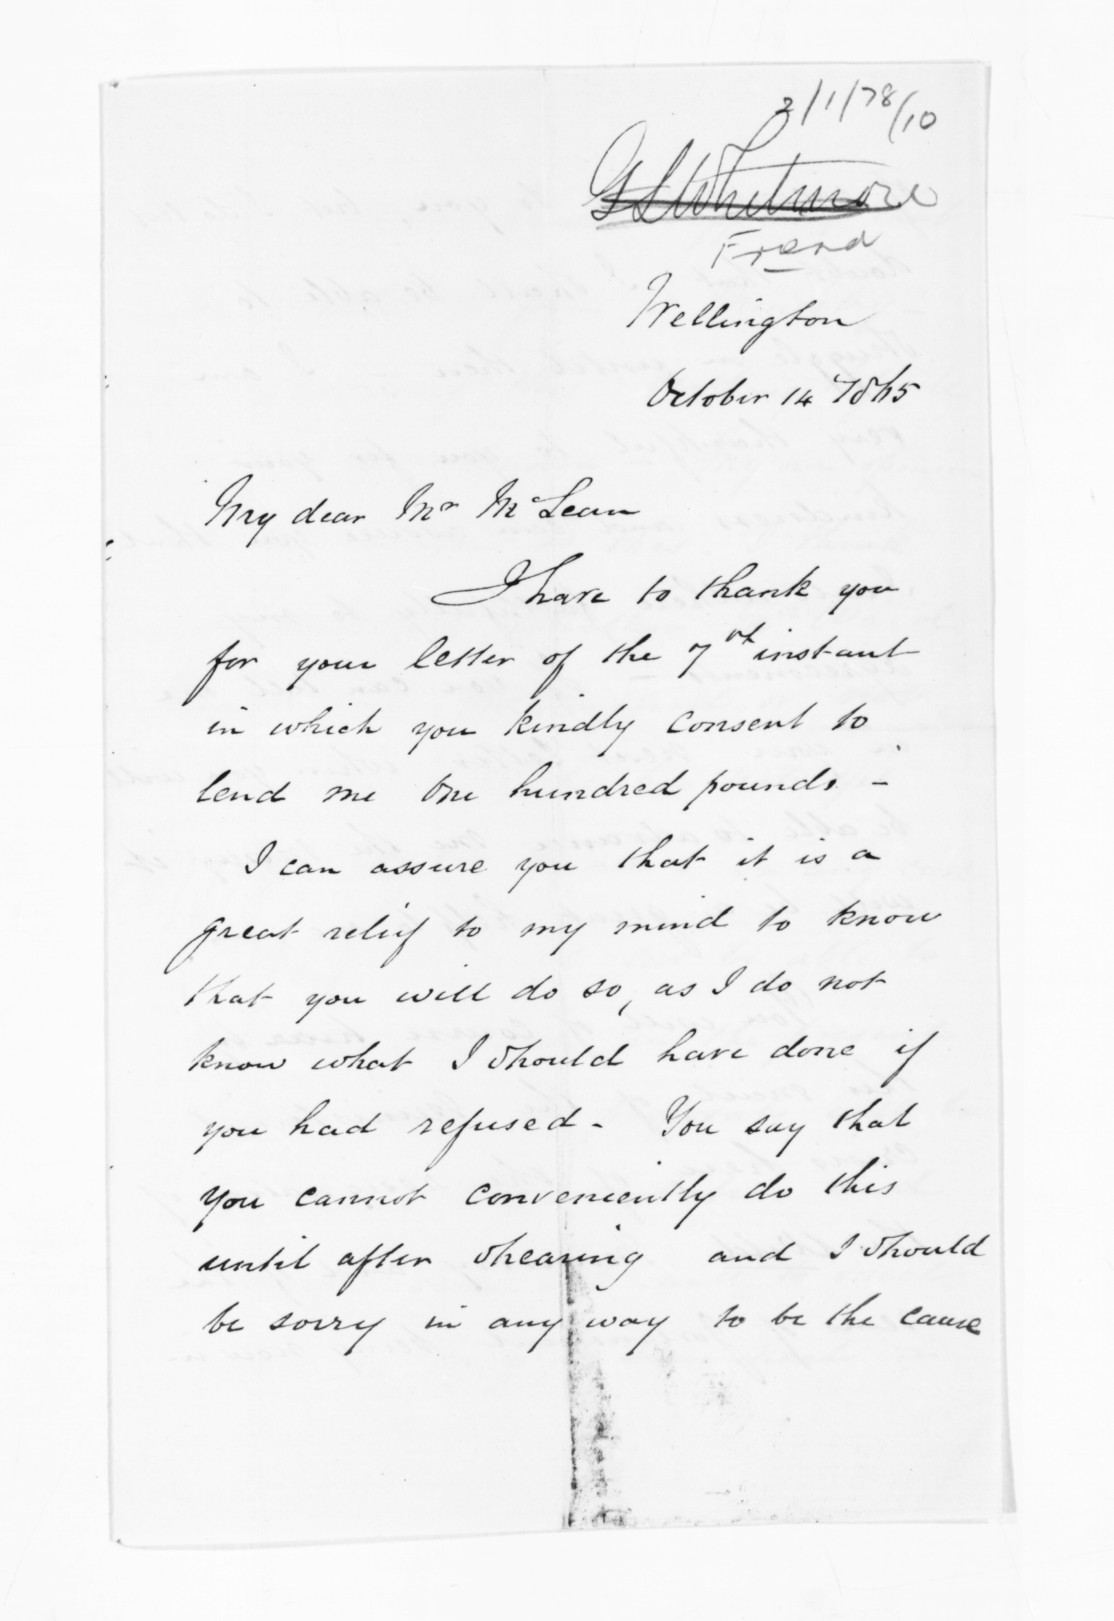 2/1/78/10
G S Whitmore
Frand
Wellington
October 14th 1865
My dear Mr McLean
I have to thank you
for your letter of the 7th instant
in which you kindly consent to
lend me One hundred pounds -
I can assure you that it is a
great relief to my mind to know
that you will do so, as I do not
know what I should have done if
you had refused - You say that
you cannot conveniently do this
until after shearing and I should
be sorry in any way to be the cause